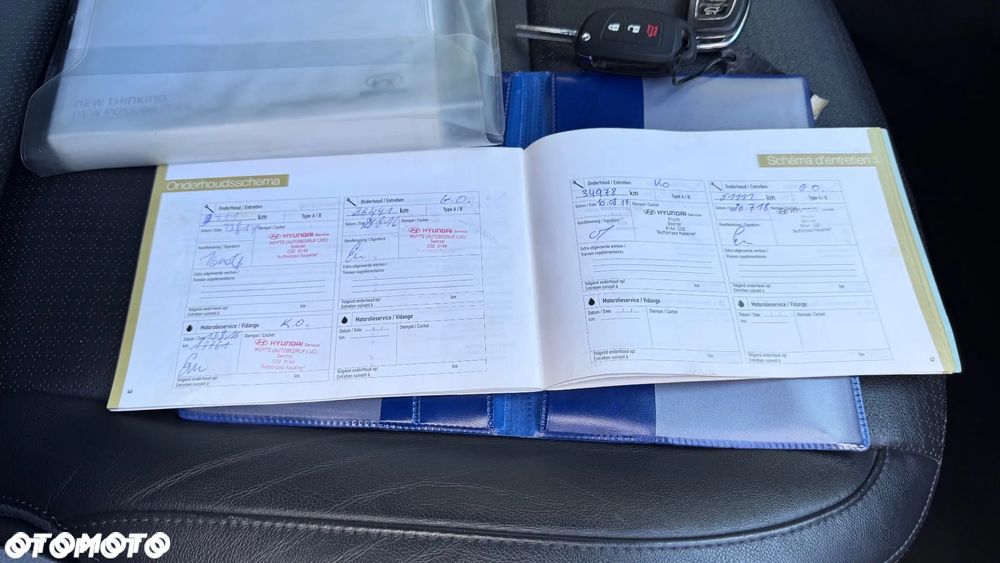 NEW THINKING.
NEW POSS
Onderhoudsschema
Onderhoud / Entretien
km Type A / B
Datum / Date
Stempel / Cachet
Handtekening / Signature
HYUNDAI Service
WUYTS (AUTOBEDRIJF LUC)
Beerzel
C02 9144
"Authorised Repairer"
Extra uitgevoerde werken /
Travaux supplémentaires
Volgend onderhoud op/
Entretien suivant à
km
Onderhoud / Entretien G.O.
26441 km Type A / B
Datum / Date
Stempel / Cachet
Handtekening / Signature
HYUNDAI Service
WUYTS (AUTOBEDRIJF LUC)
Beerzel
C02 9144
"Authorised Repairer"
Extra uitgevoerde werken /
Travaux supplémentaires
Volgend onderhoud op/
Entretien suivant à
km
Motorolieservice / Vidange K.O.
Datum / Date
Stempel / Cachet
km
HYUNDAI Service
WUYTS (AUTOBEDRIJF LUC)
Beerzel
C02 9144
"Authorised Repairer"
Volgend onderhoud op/
Entretien suivant à
km
Motorolieservice / Vidange
Datum / Date
Stempel / Cachet
km
Volgend onderhoud op/
Entretien suivant à
km
46
Schéma d'entretien
Onderhoud / Entretien KO
34978 km Type A / B
Datum / Date 10.08.17
Stempel / Cachet
Handtekening / Signature
HYUNDAI Service
Wuyts
Beerzel
9144 C02
"Authorized Repairer"
Extra uitgevoerde werken /
Travaux supplémentaires
Volgend onderhoud op/
Entretien suivant à
km
Onderhoud / Entretien G.O.
km Type A / B
Datum / Date
Stempel / Cachet
Handtekening / Signature
Extra uitgevoerde werken /
Travaux supplémentaires
Volgend onderhoud op/
Entretien suivant à
km
Motorolieservice / Vidange
Datum / Date
Stempel / Cachet
km
Volgend onderhoud op/
Entretien suivant à
km
Motorolieservice / Vidange
Datum / Date
Stempel / Cachet
km
Volgend onderhoud op/
Entretien suivant à
km
47
OTOMOTO